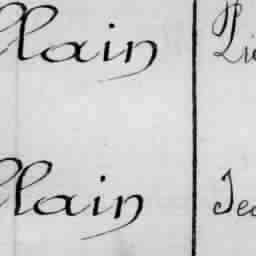 llain Pie
llain Jea